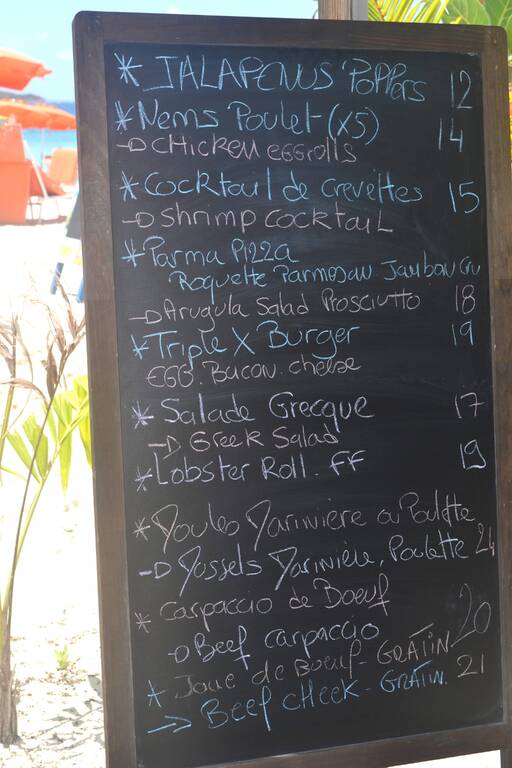 * JALAPENUS POPPERS 12
* Nems Poulet (x5) 14
→ CHicken eggrolls
* Cocktail de crevettes 15
→ Shrimp cocktail
* Parma Pizza
Roquette Parmesan Jambon Cru
→ Arugula Salad Prosciutto 18
* Triple X Burger 19
EGG. Bacon. cheese
* Salade Grecque 17
→ Greek Salad
* Lobster Roll. FF 19
* Moules Marinière ou Poulette
→ Mussels Marinière, Poulette 24
* Carpaccio de Boeuf 20
→ Beef carpaccio
* Joue de Boeuf - GRATIN 21
→ Beef cHeek - GRATIN.